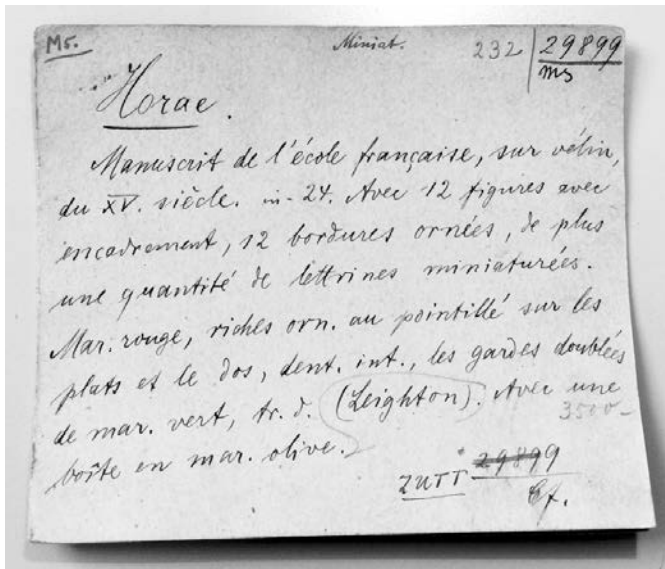 Ms. Miniat. 232 29899
ms
Horae.
Manuscrit de l'école française, sur vélin,
du XV. siècle. in-24. Avec 12 figures avec
encadrement, 12 bordures ornées, de plus
une quantité de lettrines miniaturées.
Mar. rouge, riches orn. au pointillé sur les
plats et le dos, dent. int., les gardes doublées
de mar. vert, tr. d. (Leighton). Avec une
3500-
boîte en mar. olive.
ZUTT 29899